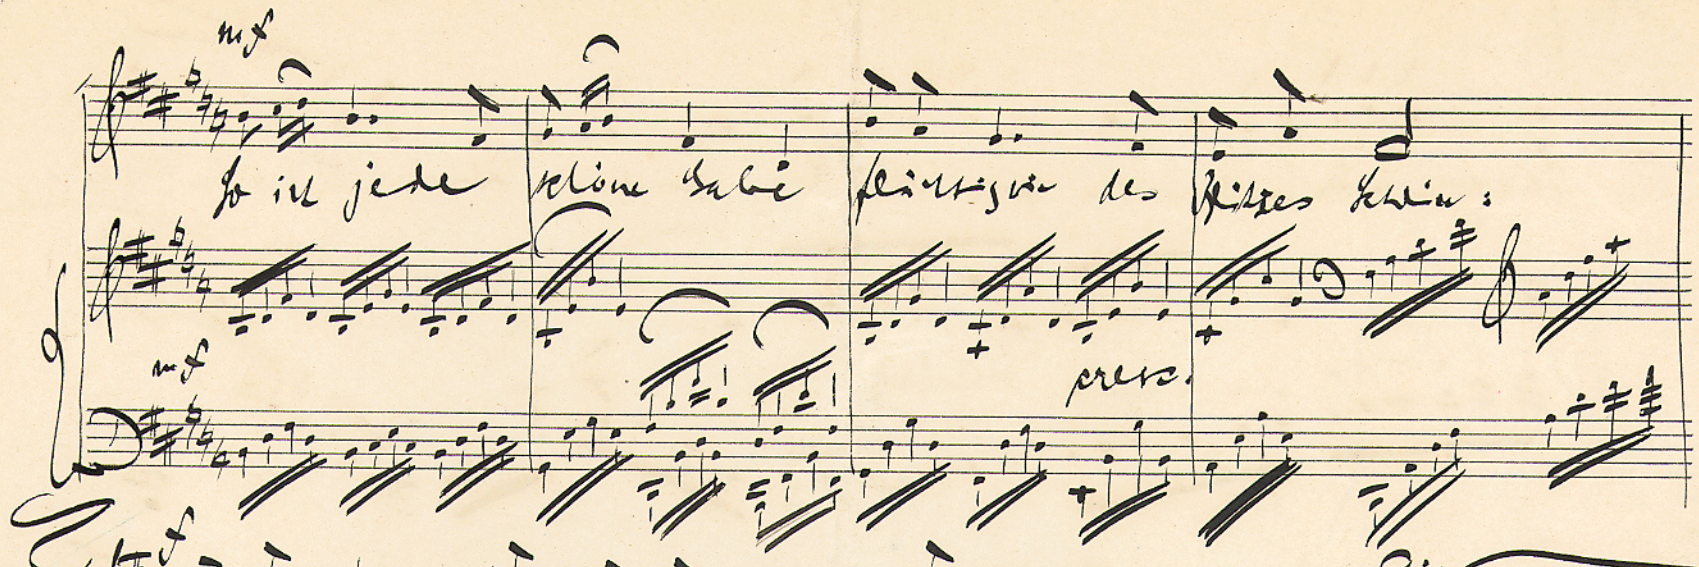 mf
So ist jede schöne Gabe flüchtig wie des Blitzes Schein:
mf
cresc.
f